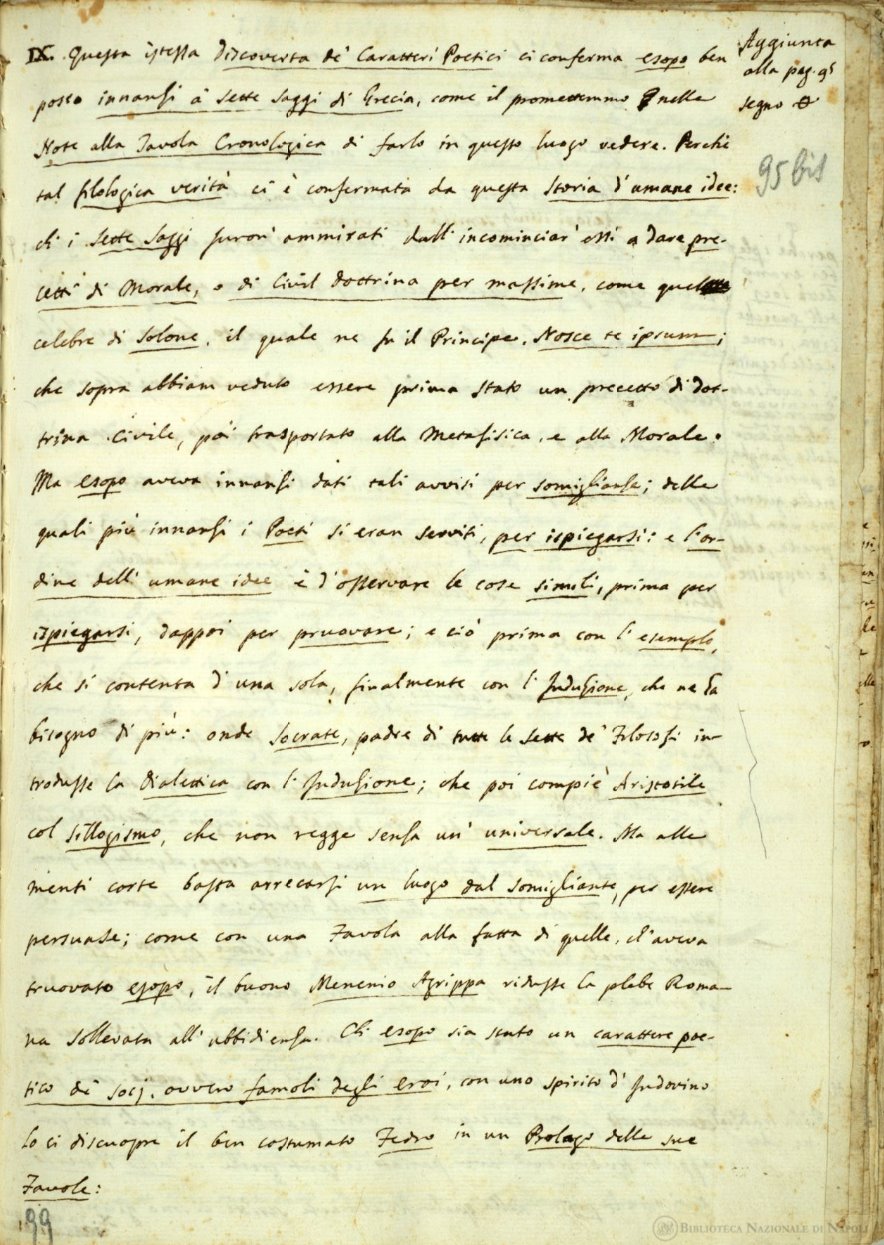 IX. Questa istessa Discoverta de' Caratteri Poetici ci conferma Esopo ben
posto innanzi a' Sette Saggi di Grecia, come il promettemmo nelle
Note alla Tavola Cronologica di farlo in questo luogo vedere. Perchè
tal filologica verità ci è confermata da questa Storia d'umane idee:
ch' i Sette Saggi furon' ammirati dall' incominciar' essi a dare pre-
cetti di Morale, o di Civil dottrina per massime, come quel
celebre di Solone, il quale ne fu il Principe, Nosce te ipsum;
che sopra abbiam veduto essere prima stato un precetto di Dot-
trina Civile, poi trasportato alla Metafisica, e alla Morale.
Ma Esopo aveva innanzi dati tali avvisi per somiglianze; delle
quali più innanzi i Poeti si eran serviti, per ispiegarsi: e l'or-
dine dell' umane idee è d'osservare le cose simili, prima per
ispiegarsi, dappoi per pruovare; e ciò prima con l' esemplo,
che si contenta d' una sola, finalmente con l' Induzione, che ne ha
bisogno di più: onde Socrate, padre di tutte le Sette de' Filosofi in-
trodusse la Dialettica con l' Induzione; che poi compiè Aristotile
col Sillogismo, che non regge senza un' universale. Ma alle
menti corte basta arrecarsi un luogo dal somigliante, per essere
persuase; come con una Favola alla fatta di quelle, ch' aveva
truovato Esopo, il buono Menenio Agrippa ridusse la plebe Roma-
na sollevata all' ubbidienza. Ch' Esopo sia stato un carattere poe-
tico de' socj, ovvero famoli degli Eroi, con uno spirito d' Indovino
lo ci discuopre il ben costumato Fedro in un Prologo delle sue
Favole:
Aggiunta
alla pag. 95
segno
95 bis
99
BIBLIOTECA NAZIONALE DI NAPOLI